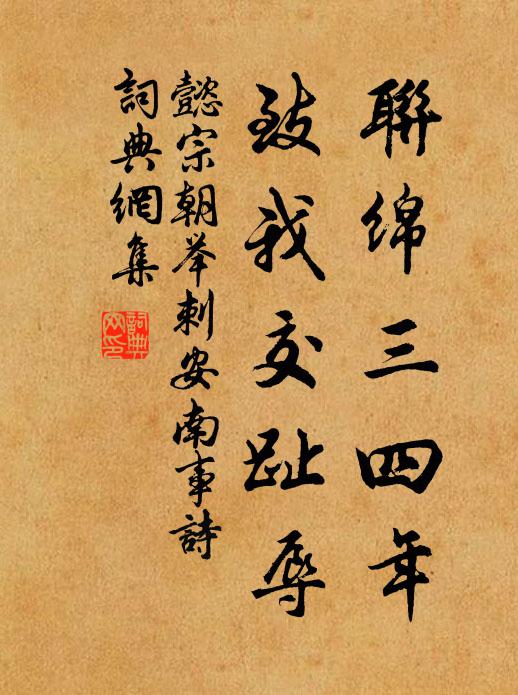 聯綿三四年
致我交趾辱
懿宗朝举刺安南事詩
詞典網集
詞典網印